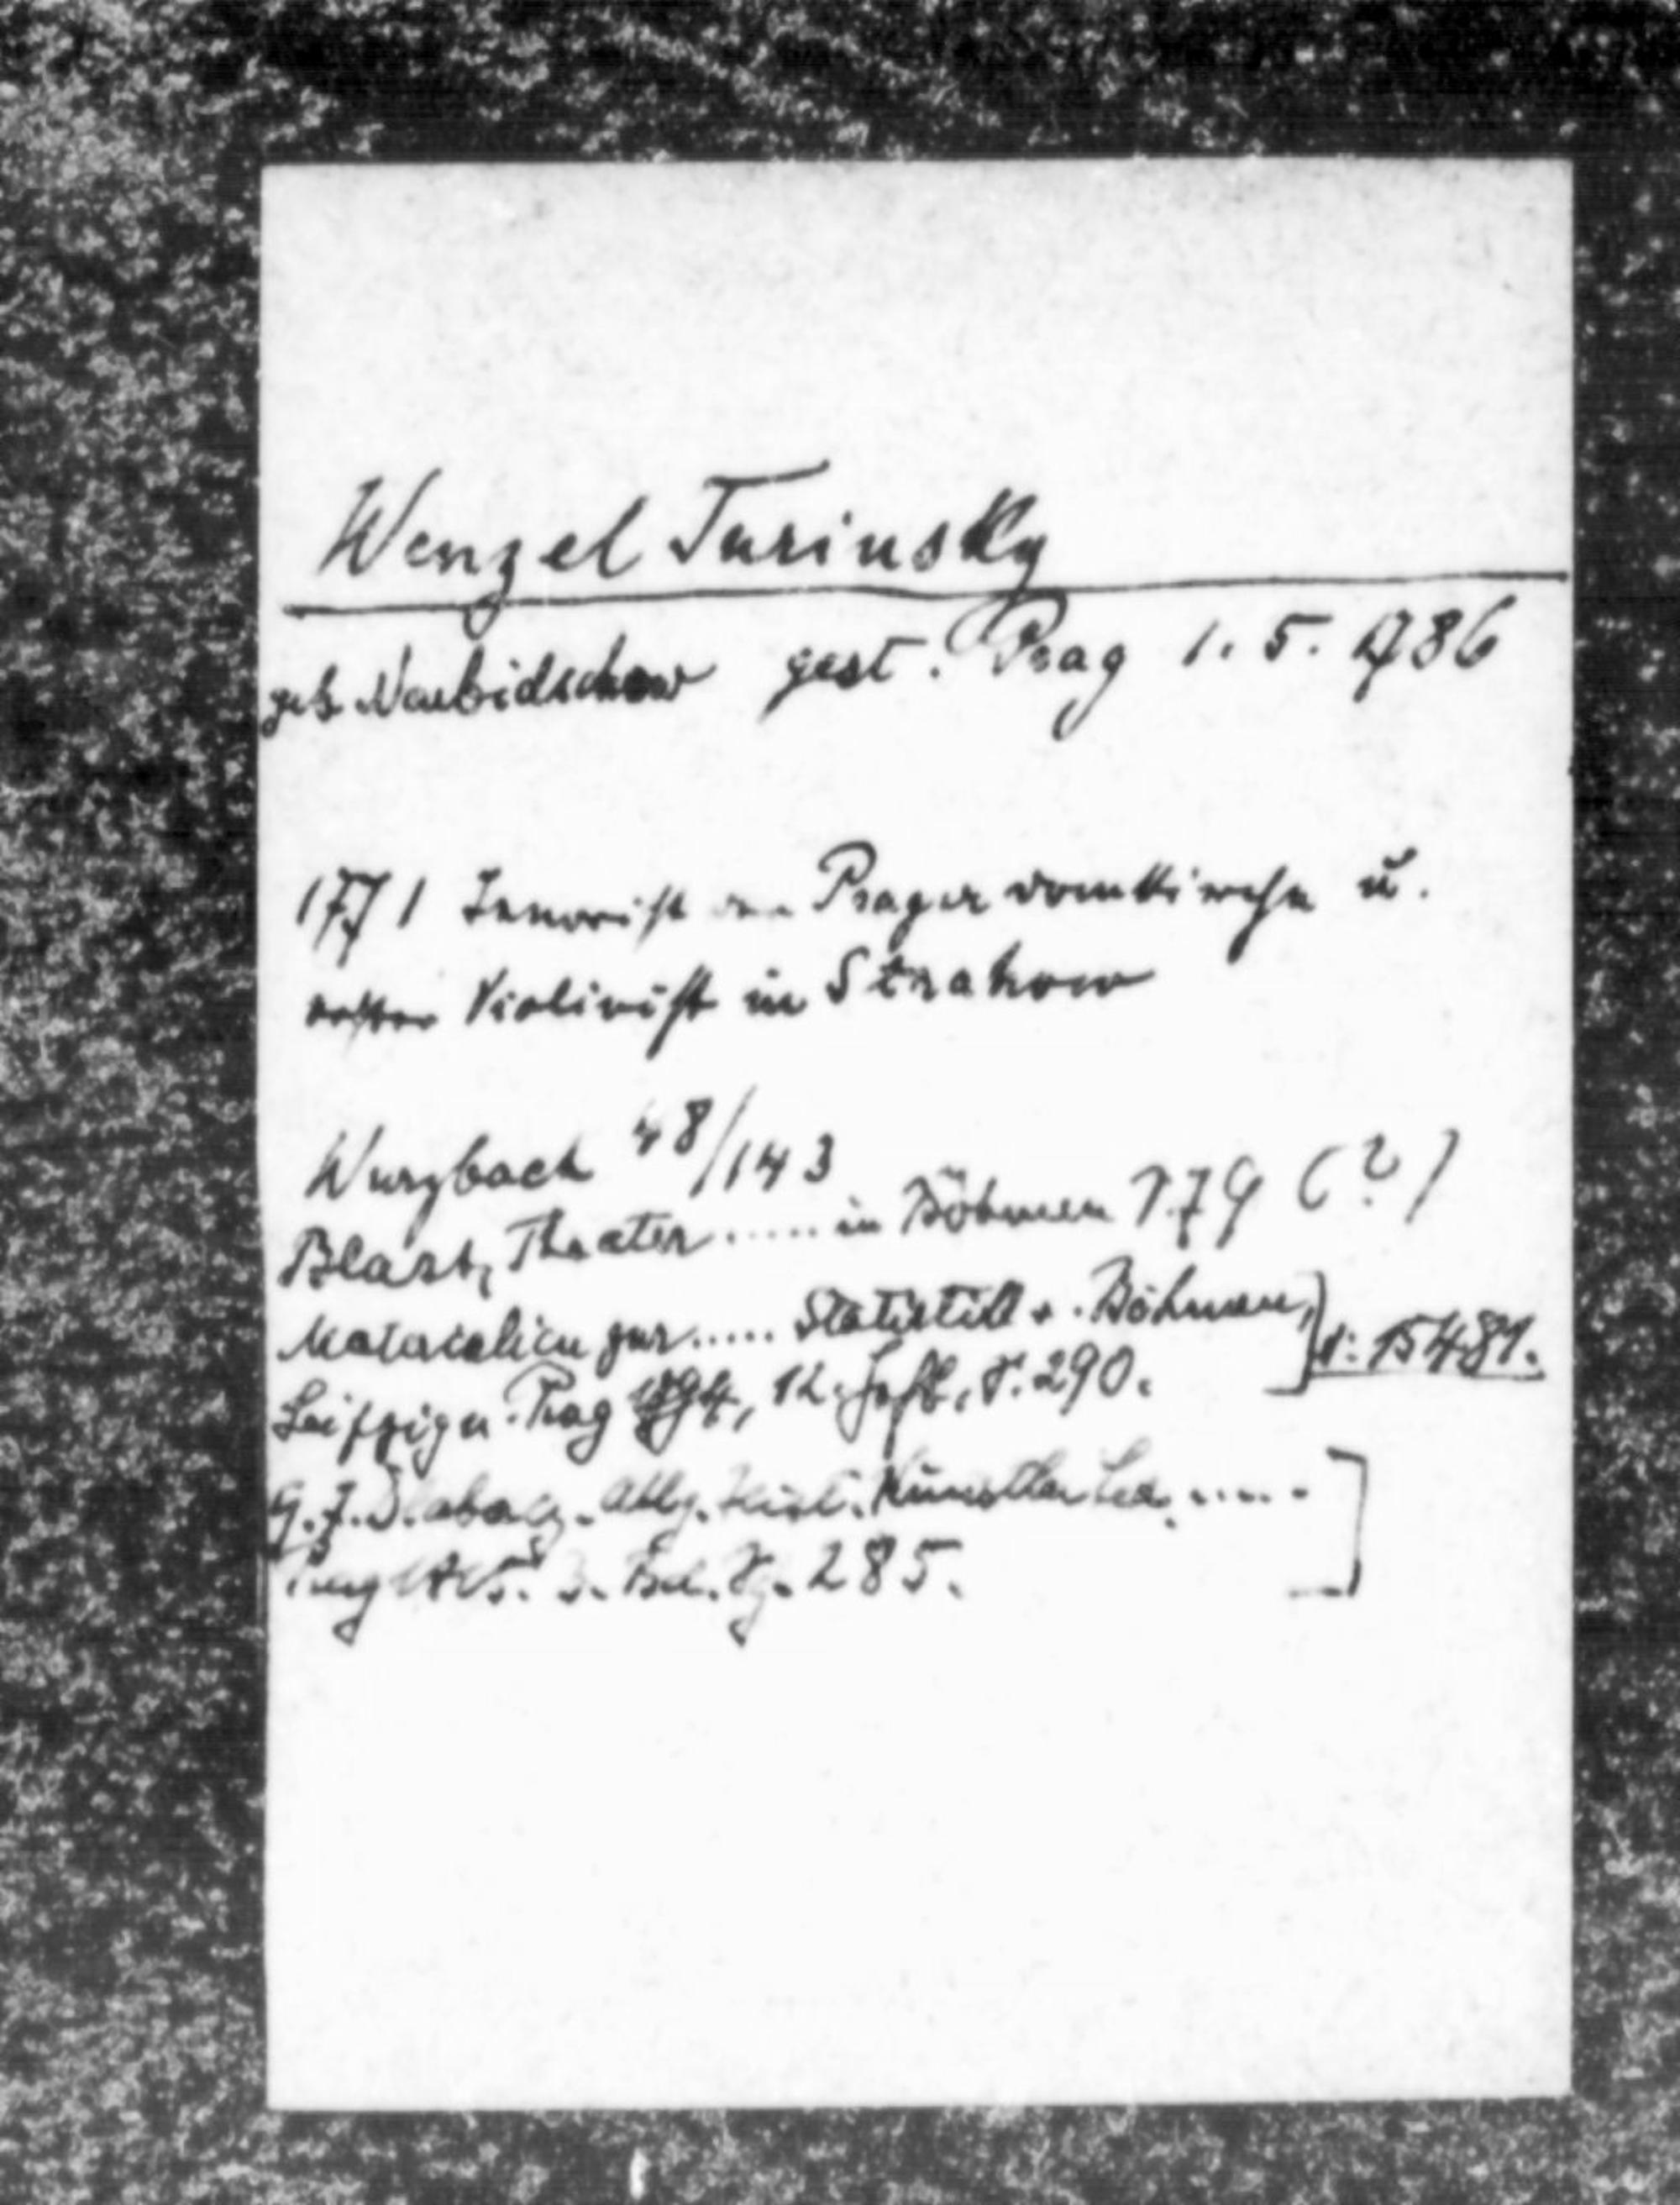 Wenzel Turinsky
geb. Neubidschow gest. Prag 1. 5. 1786
1771 Tenorist der Prager Domkirche u.
erster Violinist in Strahow
Wurzbach 48/143
Theater ..... in Böhmen S. 79 (?)
Materialien zur ..... Statistik v. Böhmen,
Leipzig u. Prag 1794, 12. Heft, S. 290.
G. J. Dlabacz. Allg. hist. Künstler Lex. .....
Prag 1815. 3. Bd. Sp. 285.